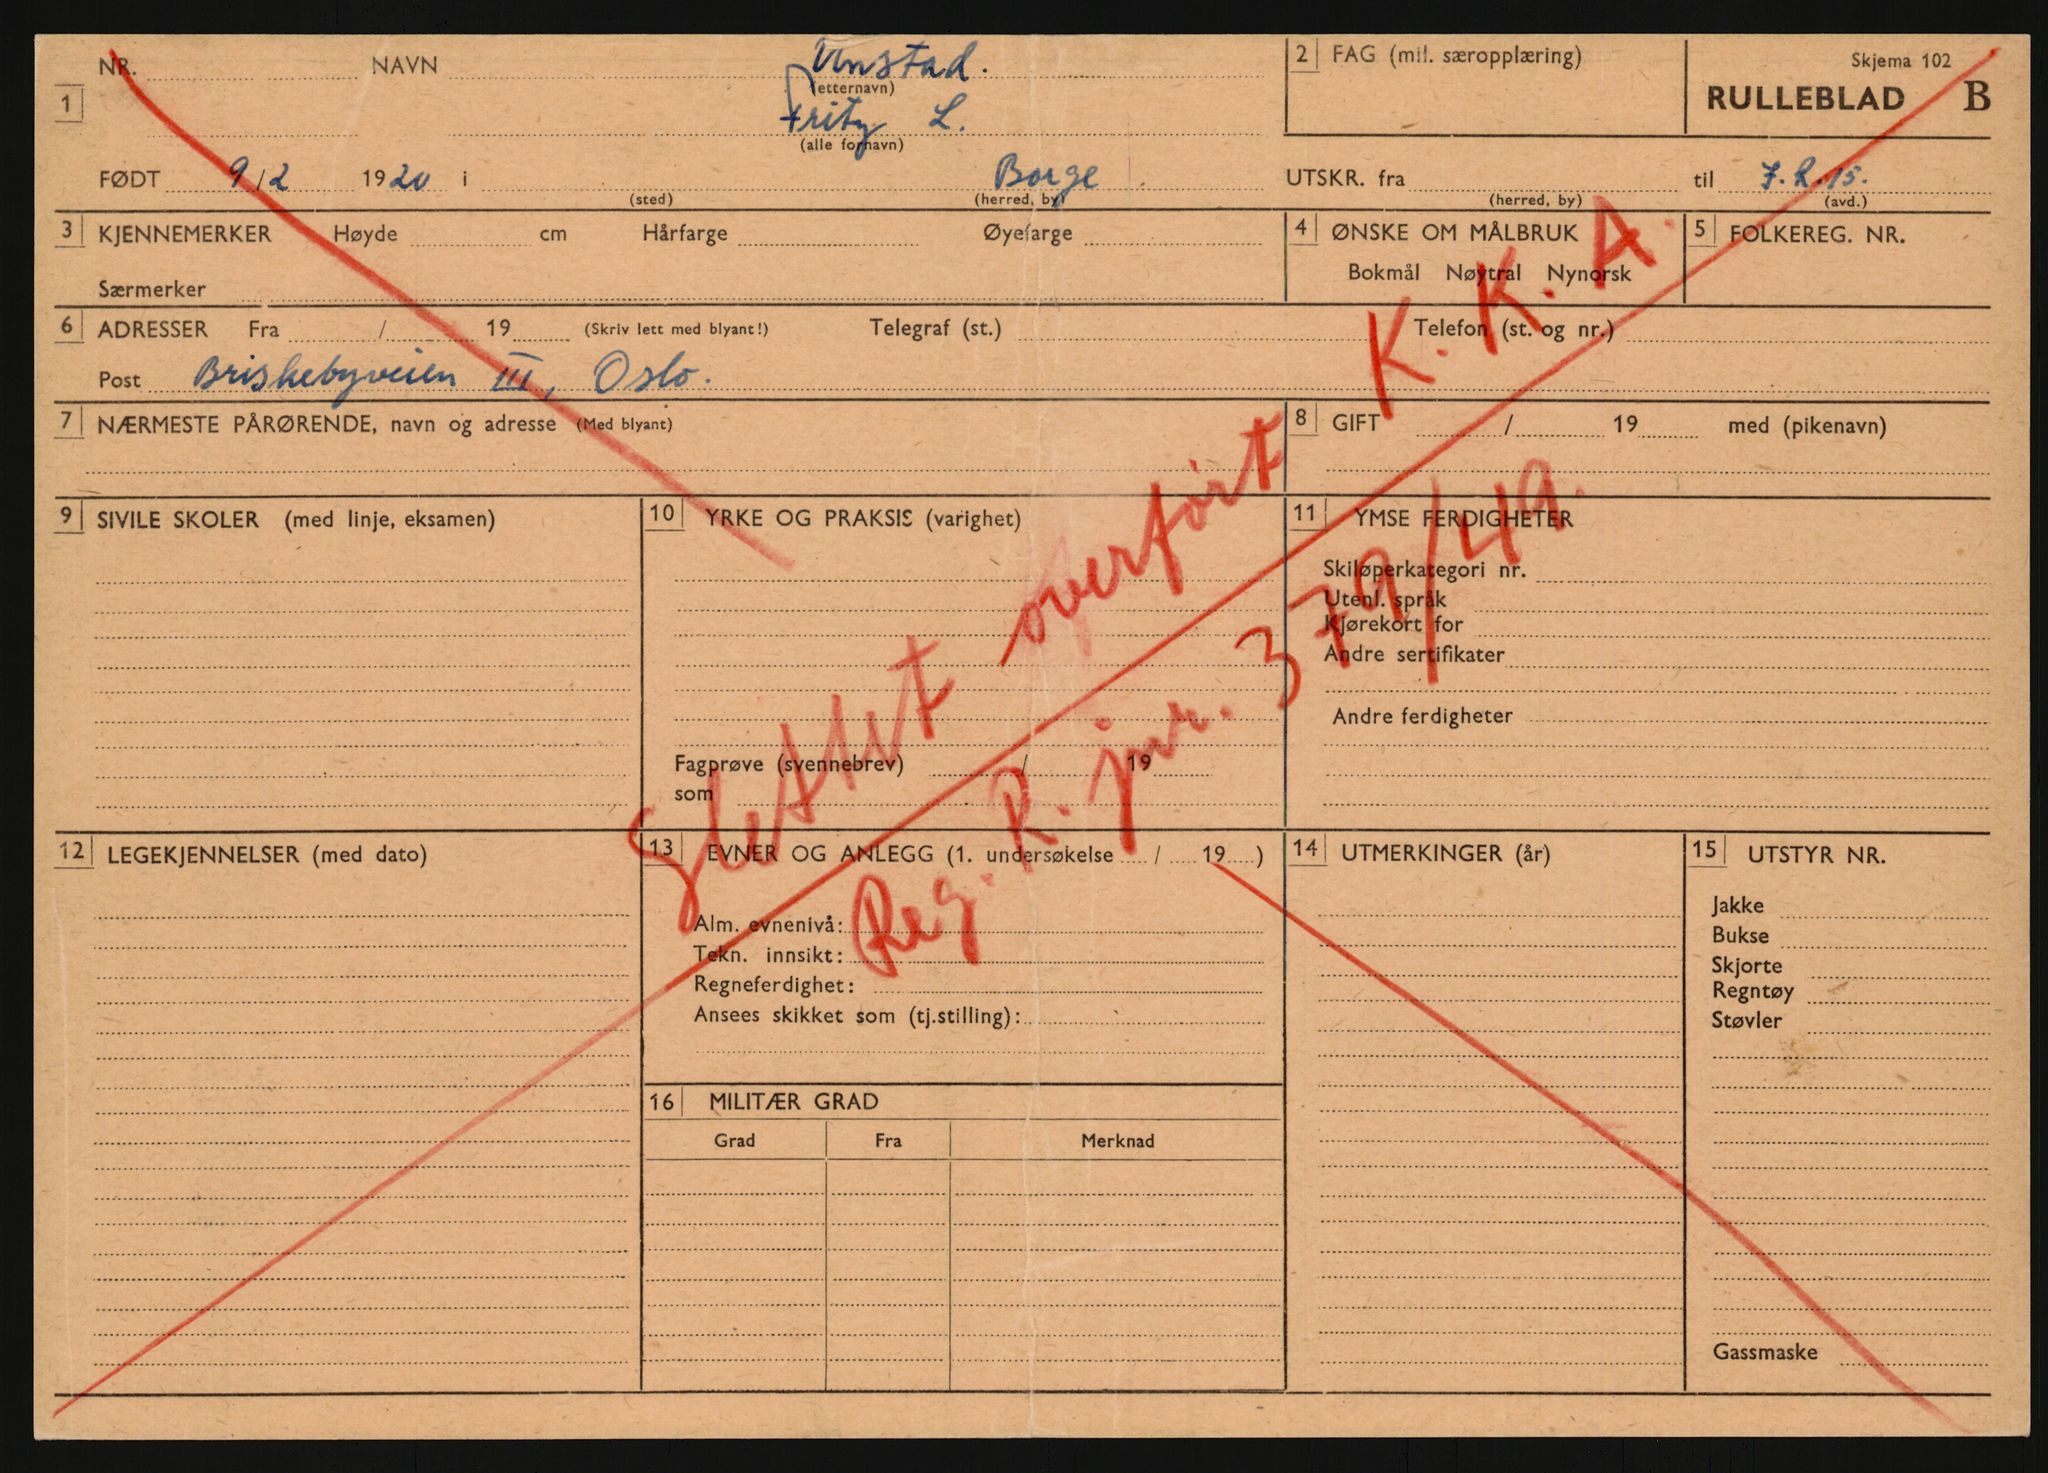 NR. NAVN Unstad.
(etternavn)
1
Fritz L.
(alle fornavn)
2 FAG (mil. særopplæring)
Skjema 102
RULLEBLAD B
FØDT 9/2 1920 i Borge
(sted) (herred, by)
UTSKR. fra til J.R.15.
(herred, by) (avd.)
3 KJENNEMERKER Høyde cm Hårfarge Øyefarge
Særmerker
4 ØNSKE OM MÅLBRUK
Bokmål Nøytral Nynorsk
5 FOLKEREG. NR.
6 ADRESSER Fra / 19 (Skriv lett med blyant!) Telegraf (st.) Telefon (st. og nr.)
Post Briskebyveien III, Oslo.
7 NÆRMESTE PÅRØRENDE, navn og adresse (Med blyant)
8 GIFT / 19 med (pikenavn)
9 SIVILE SKOLER (med linje, eksamen)
10 YRKE OG PRAKSIS (varighet)
Fagprøve (svennebrev) / 19
som
11 YMSE FERDIGHETER
Skiløperkategori nr.
Utenl. språk
Kjørekort for
Andre sertifikater
Andre ferdigheter
Slettet overført K.K.A.
Reg. R. jnr. 379/49.
12 LEGEKJENNELSER (med dato)
13 EVNER OG ANLEGG (1. undersøkelse / 19 )
Alm. evnenivå:
Tekn. innsikt:
Regneferdighet:
Ansees skikket som (tj.stilling):
14 UTMERKINGER (år)
15 UTSTYR NR.
Jakke
Bukse
Skjorte
Regntøy
Støvler
Gassmaske
16 MILITÆR GRAD
Grad Fra Merknad